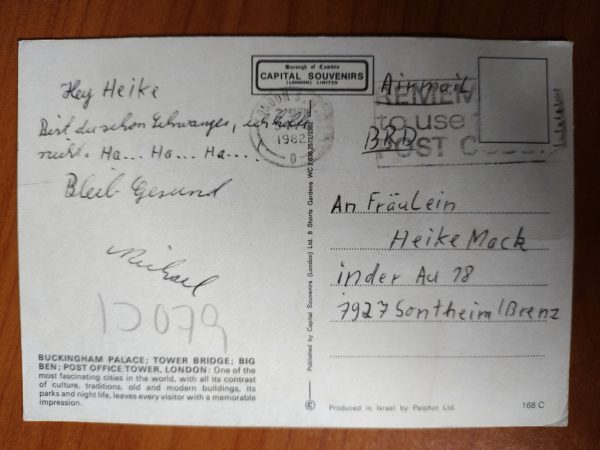 Borough of Camden
CAPITAL SOUVENIRS
(LONDON) LIMITED
Airmail
BRD
LONDON
1982
REMEM
to use
POST CODE
Hey Heike
Bist du schon Schwanger, ich hoffe
nicht. Ha... Ha... Ha....
Bleib Gesund
Michael
12079
An Fräulein
Heike Mack
in der Au 18
7927 Sontheim/Brenz
Published by Capital Souvenirs (London) Ltd. 8 Shorts Gardens WC2
BUCKINGHAM PALACE; TOWER BRIDGE; BIG
BEN; POST OFFICE TOWER, LONDON: One of the
most fascinating cities in the world, with all its contrast
of culture, traditions, old and modern buildings, its
parks and night life, leaves every visitor with a memorable
impression.
© Produced in Israel by Palphot Ltd.
168 C